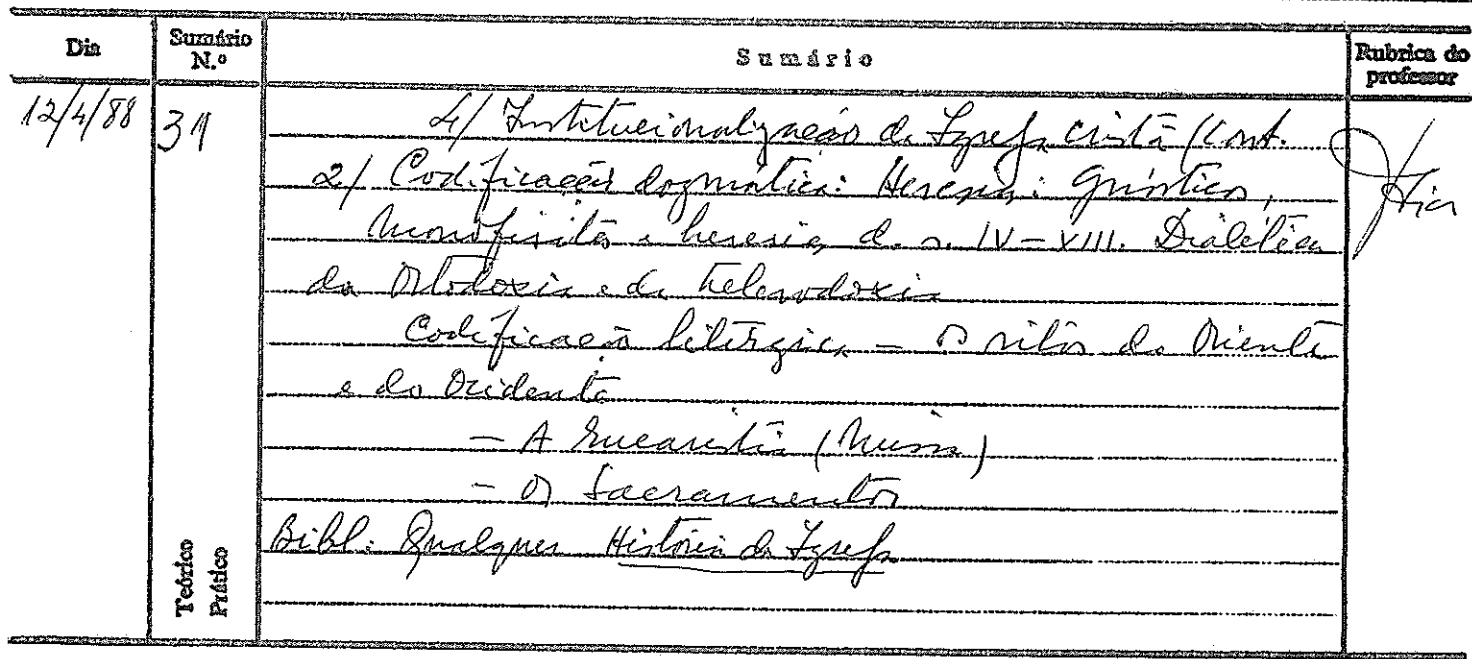 Dia
Sumário N.º
Sumário
Rubrica do professor
12/4/88
31
4/ Institucionalização da Igreja Cristã (Cont.
2/ Codificação dogmática: Heresias: Gnósticos,
Monofisitas e heresias d. s. IV-XIII. Dialética
da Ortodoxia e da heterodoxia
Codificação litúrgica - Os ritos do Oriente
e do Ocidente
- A Eucaristia (Missa)
- Os Sacramentos
Bibl: Qualquer História da Igreja
Teórico
Prático